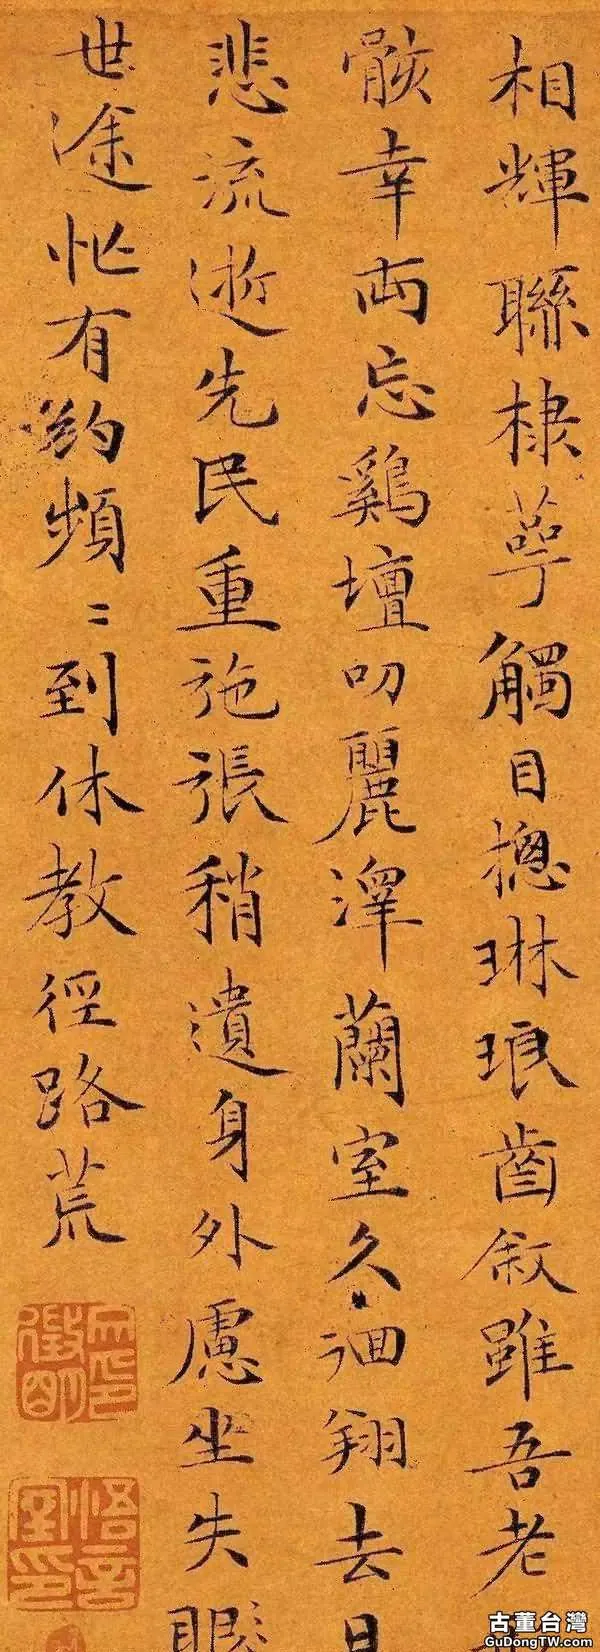 相輝聯棣萼觸目揔琳琅齒敘雖吾老
骸幸兩忘鷄壇叨麗澤蘭室久徊翔去日
悲流逝先民重施張稍遺身外慮坐失眼
世途忙有約頻〻到休教徑路荒
徵明
悟言室印
古董台灣
GuDongTW.com